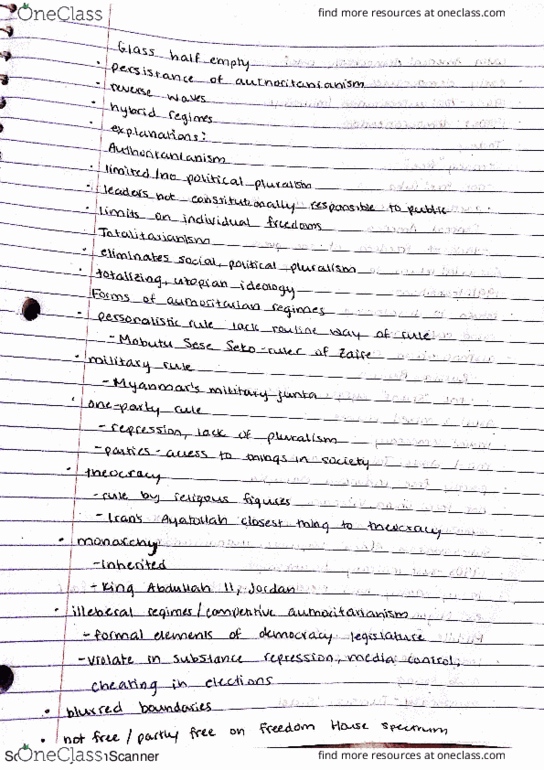 OneClass
find more resources at oneclass.com
Glass half empty
• persistance of authoritarianism
• reverse waves
• hybrid regimes
• explanations:
Authoritarianism
• limited/no political pluralism
• leaders not constitutionally responsible to public
• limits on individual freedoms
Totalitarianism
• eliminates social, political pluralism
• totalizing, utopian ideology
Forms of authoritarian regimes
• personalistic rule lack routine way of rule
- Mobutu Sese Seko - ruler of Zaire
• military rule
- Myanmar's military junta
• one-party rule
- repression, lack of pluralism
- parties - access to things in society
• theocracy
- rule by religous figures
- Iran's Ayatollah closest thing to theocracy
• monarchy
- inherited
- King Abdullah II, Jordan
• illeberal regimes/competitive authoritarianism
- formal elements of democracy legislature
- violate in substance repression, media control,
cheating in elections
• blurred boundaries
• not free / partly free on Freedom House spectrum
Scanner
OneClass
find more resources at oneclass.com